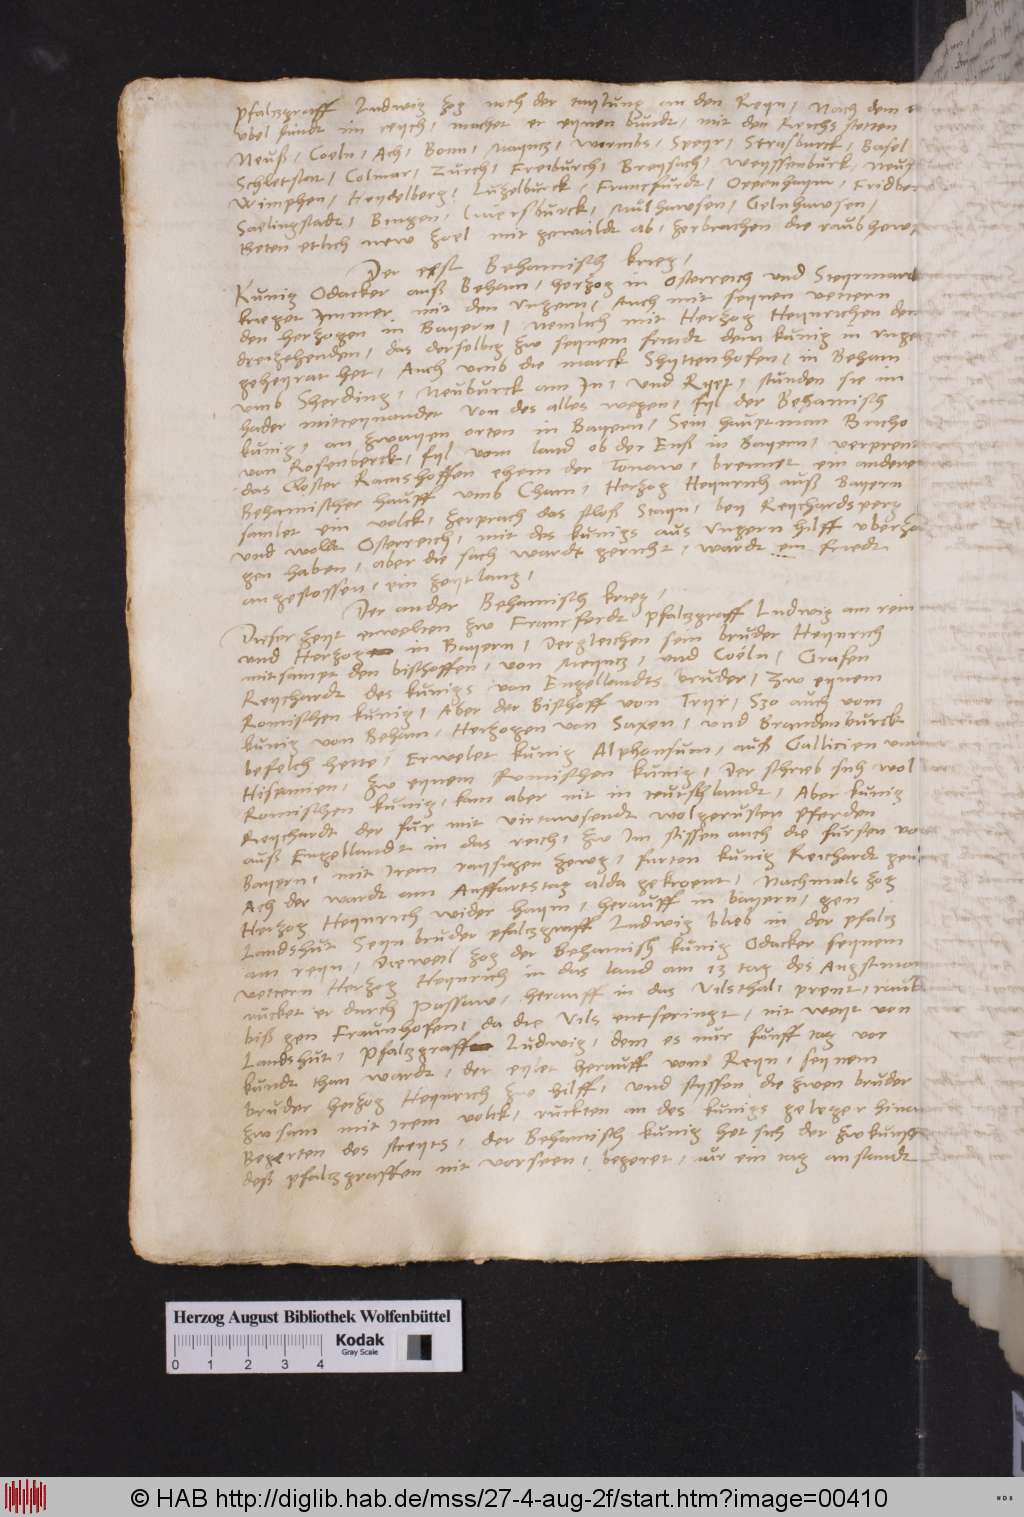 Pfaltzgraff Ludwig zog noch der taylung an den Reyn, Nach dem
vbel stundt im reych, machet er eynen bundt, mit den Reichs steten
Neuß, Coeln, Ach, Bonn, Mayntz, Wormbs, Speyr, Strasburck, Basel
Schletstat, Colmar, Zurch, Freiburch, Breysach, Weyssenburck,
Wimphen, Heydelberg, Lutzelburck, Francfurdt, Oppenhaym, Fridber
Saelingstadt, Bingen, Mulhawsen, Gelnhawsen,
theten etlich new zoel mit gewaldt ab, zerbrachen die raubhews
Der erst Behamisch krieg,
Kunig Odacker auß Beham, herzog in Osterreich und Steyrmarck
krieget Immer mit den Vngern, Auch mit seynen vettern
den herzogen in Bayern, Nemlich mit Herzog Heynrichen den
dreizehenden, das derselbig zw seynem freundt dem kunig in Vngern
geheyrat het, Auch vmb die marck Shyttenhofen, in Beham
vmb Sherding, Neuburck am In, und Ryet, stunden sie im
hader mitteynander von des alles wegen, fyl der Behamisch
kunig, an zwayen orten in Bayern, Sein hauptman Bucho
von Rosenberck, fyl vom land ob der Enß in Bayern, verprent
das Closter Ramshoffen ehem der Tonaw, brennet ein anderer
Behamischer hauff vmb Cham, Herzog Heynrich auß Bayern
samlet ein volck, zerprach das sloß Stayn, bey Reychardsperg
und wollt Osterreich, mit des kunigs aus Vngern hilff vberzo
gen haben, aber die sach wardt gericht, wardt ein friedt
angestossen, ein zeyt lang,
Der ander Behamisch krieg,
Dieser zeyt erwelten zw Francfordt Pfaltzgraff Ludwig am rein
und Herzog in Bayern, Dergleichen sein bruder Heynrich
mitsampt den bisthoffen, von Meyntz, und Coeln, Grafen
Reychardt des kunigs von Engellandts bruder, Zw eynem
Romischen kunig, Aber der Bisthoff von Tryr, Szo auch vom
kunig von Beham, Herzogen von Saxen, und Brandenburck
befelch hette, Erwelet kunig Alphonsum, auß Gallicien und
Hispanien, zw eynem Romischen kunig, Der schrieb sich wol
Romischen kunig, kam aber nit in teutschlandt, Aber kunig
Reychardt der fur mit virtawsendt wolgerusten pferden
auß Engellandt in das reich, zw Im stissen auch die fursten von
Bayern, mit Irem raysigen zewg, furten kunig Reichardt gen
Ach der wardt am Auffartstag alda gekroent, Nachmals zog
Herzog Heynrich wider haym, herauff in bayern, gen
Landshut Seyn bruder pfaltzgraff Ludwig blieb in der pfaltz
am reyn, Dieweil zog der Behamisch kunig Odacker seynem
vettern Herzog Heynrich in das land am 13 tag des Augstmon
rucket er durch Passaw, herauff in das Vilsthal, prent, raubt
biß gen Fraunhofen, da die Vils entspringt, nit weyt von
Landshut, Pfaltzgraff Ludwig, dem es nur funff tag vor
kundt than wardt, der eylet herauff vom Reyn, seynem
bruder herzog Heynrich zw hilff, und styssen die zwen bruder
zwsam mit Irem volck, ruckten an des kunigs geleger hinan
Begerten des streyts, der Behamisch kunig het sich der zwkunfft
deß pfaltzgraffen nit vorseen, begeret, nur ein tag anstandt
Herzog August Bibliothek Wolfenbüttel
0 1 2 3 4
Kodak
Gray Scale
© HAB http://diglib.hab.de/mss/27-4-aug-2f/start.htm?image=00410